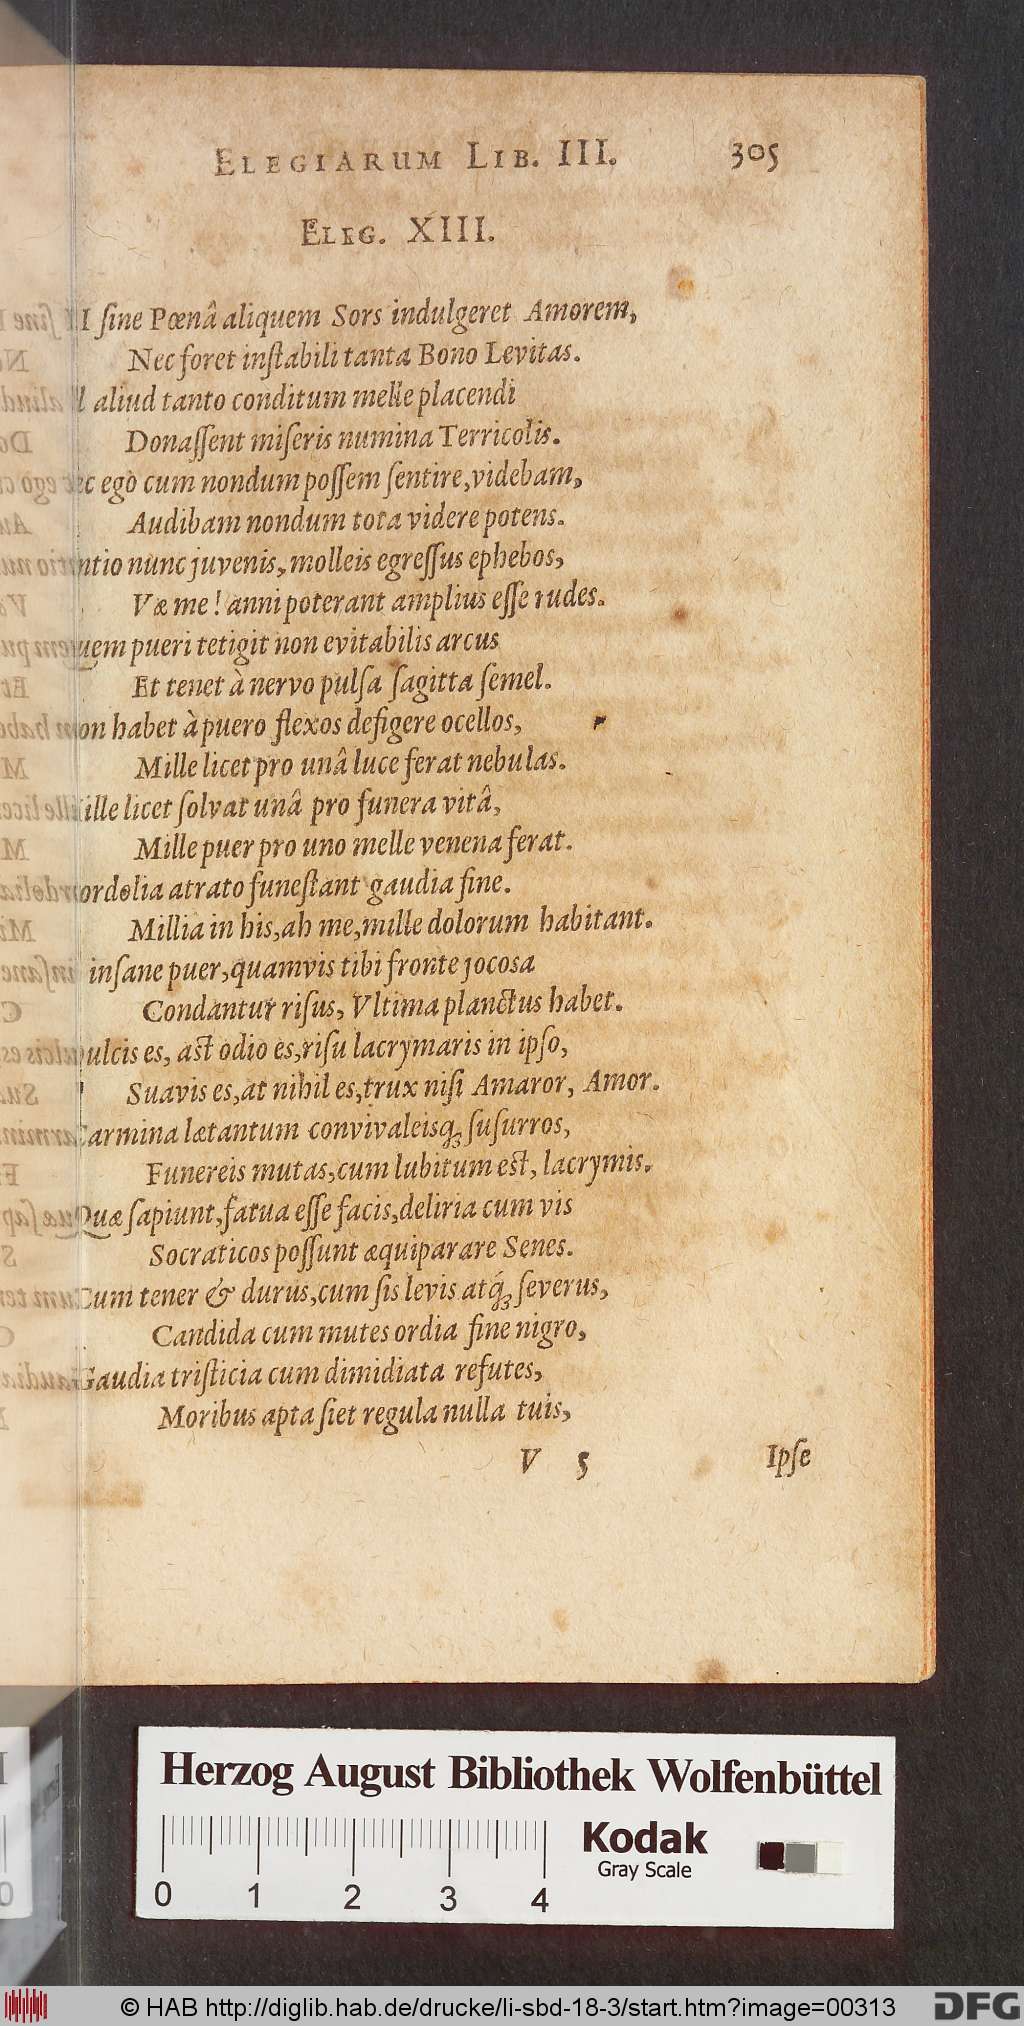 ELEGIARUM LIB. III. 305
ELEG. XIII.
ſine Pœnâ aliquem Sors indulgeret Amorem,
Nec foret inſtabili tanta Bono Levitas.
aliud tanto conditum melle placendi
Donaſſent miſeris numina Terricolis.
ego cum nondum poſſem ſentire, videbam,
Audibam nondum tota videre potens.
nunc juvenis, molleis egreſſus ephebos,
Væ me! anni poterant amplius eſſe rudes.
quem pueri tetigit non evitabilis arcus
Et tenet à nervo pulſa ſagitta ſemel.
non habet à puero flexos defigere ocellos,
Mille licet pro unâ luce ferat nebulas.
Mille licet ſolvat unâ pro funera vitâ,
Mille puer pro uno melle venena ferat.
Cordolia atrato funeſtant gaudia fine.
Millia in his, ah me, mille dolorum habitant.
inſane puer, quamvis tibi fronte jocosa
Condantur riſus, Vltima planctus habet.
Dulcis es, aſt odio es, riſu lacrymaris in ipſo,
Suavis es, at nihil es, trux niſi Amaror, Amor.
Carmina lætantum convivaleisq́; ſuſurros,
Funereis mutas, cum lubitum eſt, lacrymis.
Quæ ſapiunt, fatua eſſe facis, deliria cum vis
Socraticos poſſunt æquiparare Senes.
Cum tener & durus, cum ſis levis atq́; ſeverus,
Candida cum mutes ordia fine nigro,
Gaudia triſticia cum dimidiata refutes,
Moribus apta ſiet regula nulla tuis,
V 5 Ipſe
Herzog August Bibliothek Wolfenbüttel
Kodak
Gray Scale
0 1 2 3 4
© HAB http://diglib.hab.de/drucke/li-sbd-18-3/start.htm?image=00313
DFG